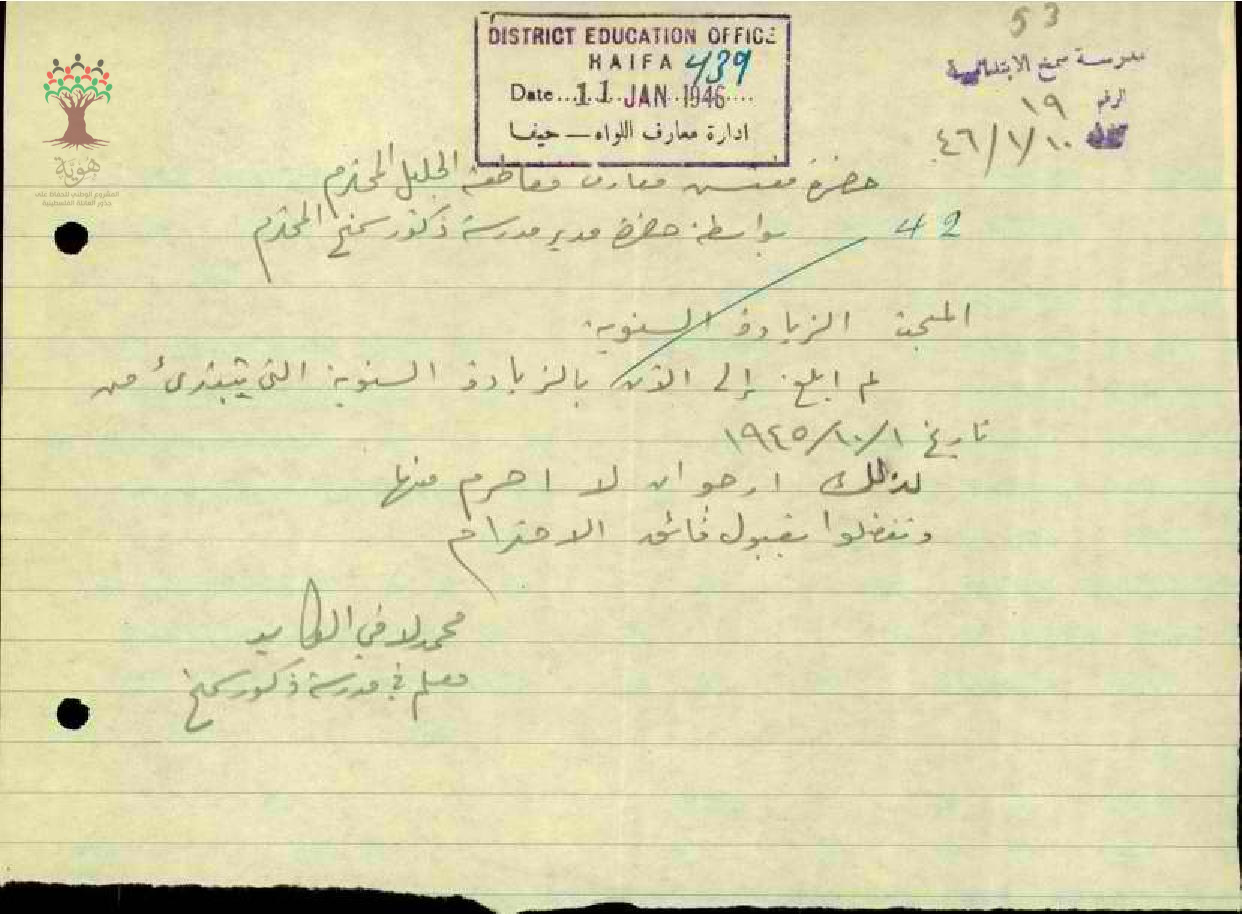 53
مدرسة سمخ الابتدائية
الرقم ١٩
٤٦/١/١٠
DISTRICT EDUCATION OFFICE
HAIFA 439
Date...11 JAN 1946....
ادارة معارف اللواء — حيفا
هوية
المشروع الوطني للحفاظ على
جذور العائلة الفلسطينية
حضرة مفتش معارف مقاطعة الجليل المحترم
42 بواسطة حضرة مدير مدرسة ذكور سمخ المحترم
المبحث الزيادة السنوية
لم ابلغ إلى الآن بالزيادة السنوية التي تبتدئ من
تاريخ ١٩٤٥/١٠/١
لذلك ارجو ان لا احرم منها
وتفضلوا بقبول فائق الاحترام
محمد لافي العايد
معلم في مدرسة ذكور سمخ